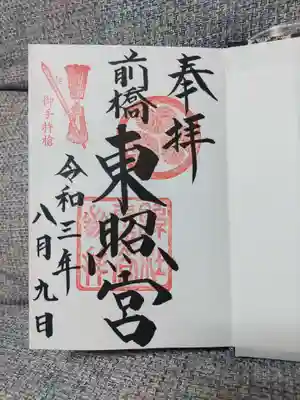 奉拝
前橋
東照宮
御手杵槍
令和三年
八月九日